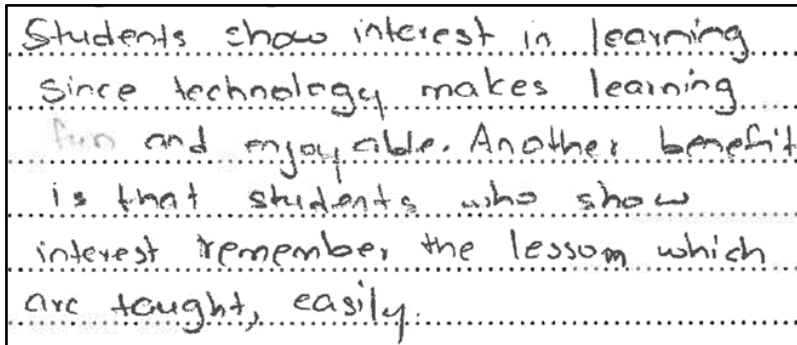 Students show interest in learning
since technology makes learning
fun and enjoyable. Another benefit
is that students who show
interest remember the lessom which
are taught, easily.